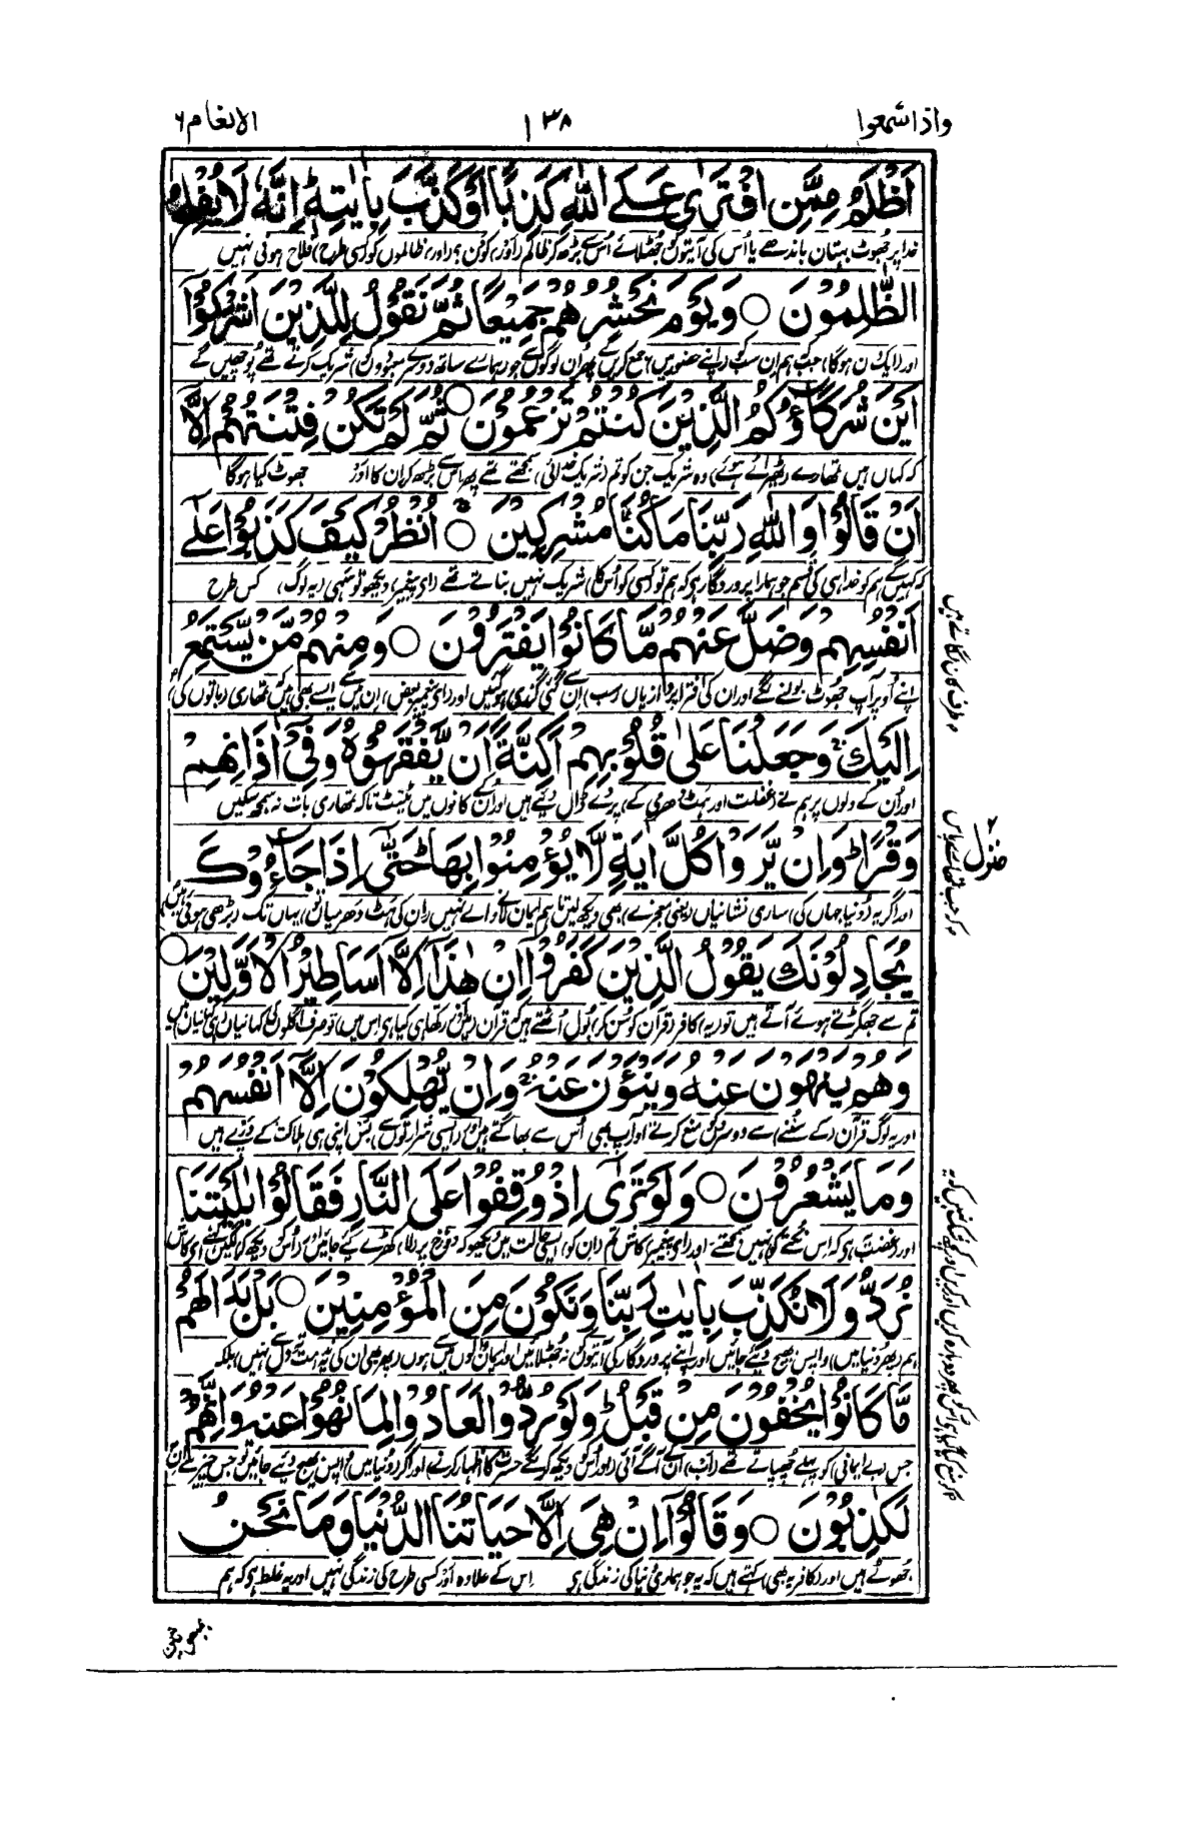 واذاسمعوا ۱۳۸ الانعام ۶
اَظْلَمُ مِمَّنِ افْتَرٰى عَلَى اللّٰهِ كَذِبًا اَوْ كَذَّبَ بِاٰيٰتِهٖ ؕ اِنَّهٗ لَا يُفْلِحُ
خدا پر جھوٹ بہتان باندھے یا اُس کی آیتوں کو جھٹلائے اُس سے بڑھ کر ظالم (اور) کون؟ (اور) ظالموں کو کسی طرح (فلاح) ہونی نہیں
الظّٰلِمُوْنَ ○ وَيَوْمَ نَحْشُرُهُمْ جَمِيْعًا ثُمَّ نَقُوْلُ لِلَّذِيْنَ اَشْرَكُوْۤا
اور (ایک دن ہوگا) جبکہ ہم اِن سب کو (اپنے حضور میں) جمع کریں گے پھر اُن لوگوں سے جو (ہمارے ساتھ دوسرے معبودوں کو) شریک کرتے تھے پوچھیں گے
اَيْنَ شُرَكَآؤُكُمُ الَّذِيْنَ كُنْتُمْ تَزْعُمُوْنَ ○ ثُمَّ لَمْ تَكُنْ فِتْنَتُهُمْ اِلَّاۤ
کہ کہاں ہیں تمھارے (ٹھیرائے ہوئے) وہ شریک جن کو تم (شریک خدائی) سمجھتے تھے پھر اس سے بڑھ کر ان کا اور جھوٹ کیا ہوگا
اَنْ قَالُوْا وَاللّٰهِ رَبِّنَا مَا كُنَّا مُشْرِكِيْنَ ○ اُنْظُرْ كَيْفَ كَذَبُوْا عَلٰۤى
کہ کہیں گے ہم کو خدا ہی کی قسم جو ہمارا پروردگار ہے کہ ہم تو کسی کو اُس کا) شریک نہیں بناتے تھے (ای پیغمبر) دیکھو تو سہی (یہ لوگ) کس طرح
اَنْفُسِهِمْ وَضَلَّ عَنْهُمْ مَّا كَانُوْا يَفْتَرُوْنَ ○ وَمِنْهُمْ مَّنْ يَّسْتَمِعُ
اپنے اُوپر آپ جھوٹ بولنے لگے اور ان کی افترا پردازیاں (سب) اِن سے گئی گذری ہو گئیں اور (ای پیغمبر بعض) اِن میں سے ایسے بھی ہیں کہ تمھاری (باتوں کی)
اِلَيْكَ ۚ وَجَعَلْنَا عَلٰى قُلُوْبِهِمْ اَكِنَّةً اَنْ يَّفْقَهُوْهُ وَفِىْۤ اٰذَانِهِمْ
اور اُن کے دلوں پر ہم نے (غفلت اور ہٹ دھرمی کے) پردے ڈال دیئے ہیں اور اُن کے کانوں میں ٹینٹ تاکہ تمھاری بات نہ سمجھ سکیں
وَقْرًا ؕ وَاِنْ يَّرَوْا كُلَّ اٰيَةٍ لَّا يُؤْمِنُوْا بِهَا ؕ حَتّٰىۤ اِذَا جَآءُوْكَ
اور اگر یہ (دنیا جہاں کی) ساری نشانیاں (یعنی معجزے) بھی دیکھ لیں تاہم ایمان لانے والے نہیں (ان کی ہٹ دھرمیاں تو) یہاں تک (بڑھی ہوئی ہیں)
يُجَادِلُوْنَكَ يَقُوْلُ الَّذِيْنَ كَفَرُوْۤا اِنْ هٰذَاۤ اِلَّاۤ اَسَاطِيْرُ الْاَوَّلِيْنَ ○
تم سے جھگڑتے ہوئے آتے ہیں تو (یہ) کافر (قرآن کو سُن کر) بول اُٹھتے ہیں کہ قرآن (میں) رکھا ہی کیا ہے اس میں) تو صرف اگلوں کی کہانیاں ہی کہانیاں ہیں
وَهُمْ يَنْهَوْنَ عَنْهُ وَيَنْـَٔوْنَ عَنْهُ ۚ وَاِنْ يُّهْلِكُوْنَ اِلَّاۤ اَنْفُسَهُمْ
اور یہ لوگ قرآن (کے سُننے) سے دوسروں کو منع کرتے اور آپ بھی اُس سے بھاگتے ہیں اور (ایسی شرارتوں سے) بس اپنی ہی ہلاکت کے درپے ہیں
وَمَا يَشْعُرُوْنَ ○ وَلَوْ تَرٰۤى اِذْ وُقِفُوْا عَلَى النَّارِ فَقَالُوْا يٰلَيْتَنَا
اور (غضب یہ ہے کہ اِس نکتے کو) نہیں سمجھتے۔ اور (ای پیغمبر) کاش تم (ان کو) ایسی حالت میں دیکھو کہ دوزخ پر (لا) کھڑے کیے جائیں اور (اُس کو دیکھ کر) لگیں کہنے ای کاش
نُرَدُّ وَلَا نُكَذِّبَ بِاٰيٰتِ رَبِّنَا وَنَكُوْنَ مِنَ الْمُؤْمِنِيْنَ ○ بَلْ بَدَا لَهُمْ
ہم (پھر دنیا میں) واپس بھیج دیئے جائیں اور اپنے پروردگار کی آیتوں کو نہ جھٹلائیں اور ایمان والوں میں سے ہوں (پھر بھی ان کی یہ ندامت تہ دل سے نہیں) بلکہ
مَّا كَانُوْا يُخْفُوْنَ مِنْ قَبْلُ ؕ وَلَوْ رُدُّوْا لَعَادُوْا لِمَا نُهُوْا عَنْهُ وَاِنَّهُمْ
جس (بے ایمانی) کو پہلے چھپاتے تھے (اب) اُن کے آگے آئی (اور اُس کو دیکھ کر لگے حسرت کا اظہار کرنے) اور اگر (دنیا میں) واپس بھیج دیئے جائیں تو جس چیز سے اُن
لَكٰذِبُوْنَ ○ وَقَالُوْۤا اِنْ هِىَ اِلَّا حَيَاتُنَا الدُّنْيَا وَمَا نَحْنُ
جھوٹے ہیں اور (کافر یہ بھی) کہتے ہیں کہ یہ جو ہماری دنیا کی زندگی ہے اِس کے علاوہ اور کسی طرح کی زندگی نہیں اور یہ غلط ہے کہ ہم
طرف کان لگاتے ہیں
منزل ۲
کہ جب تمھارے پاس